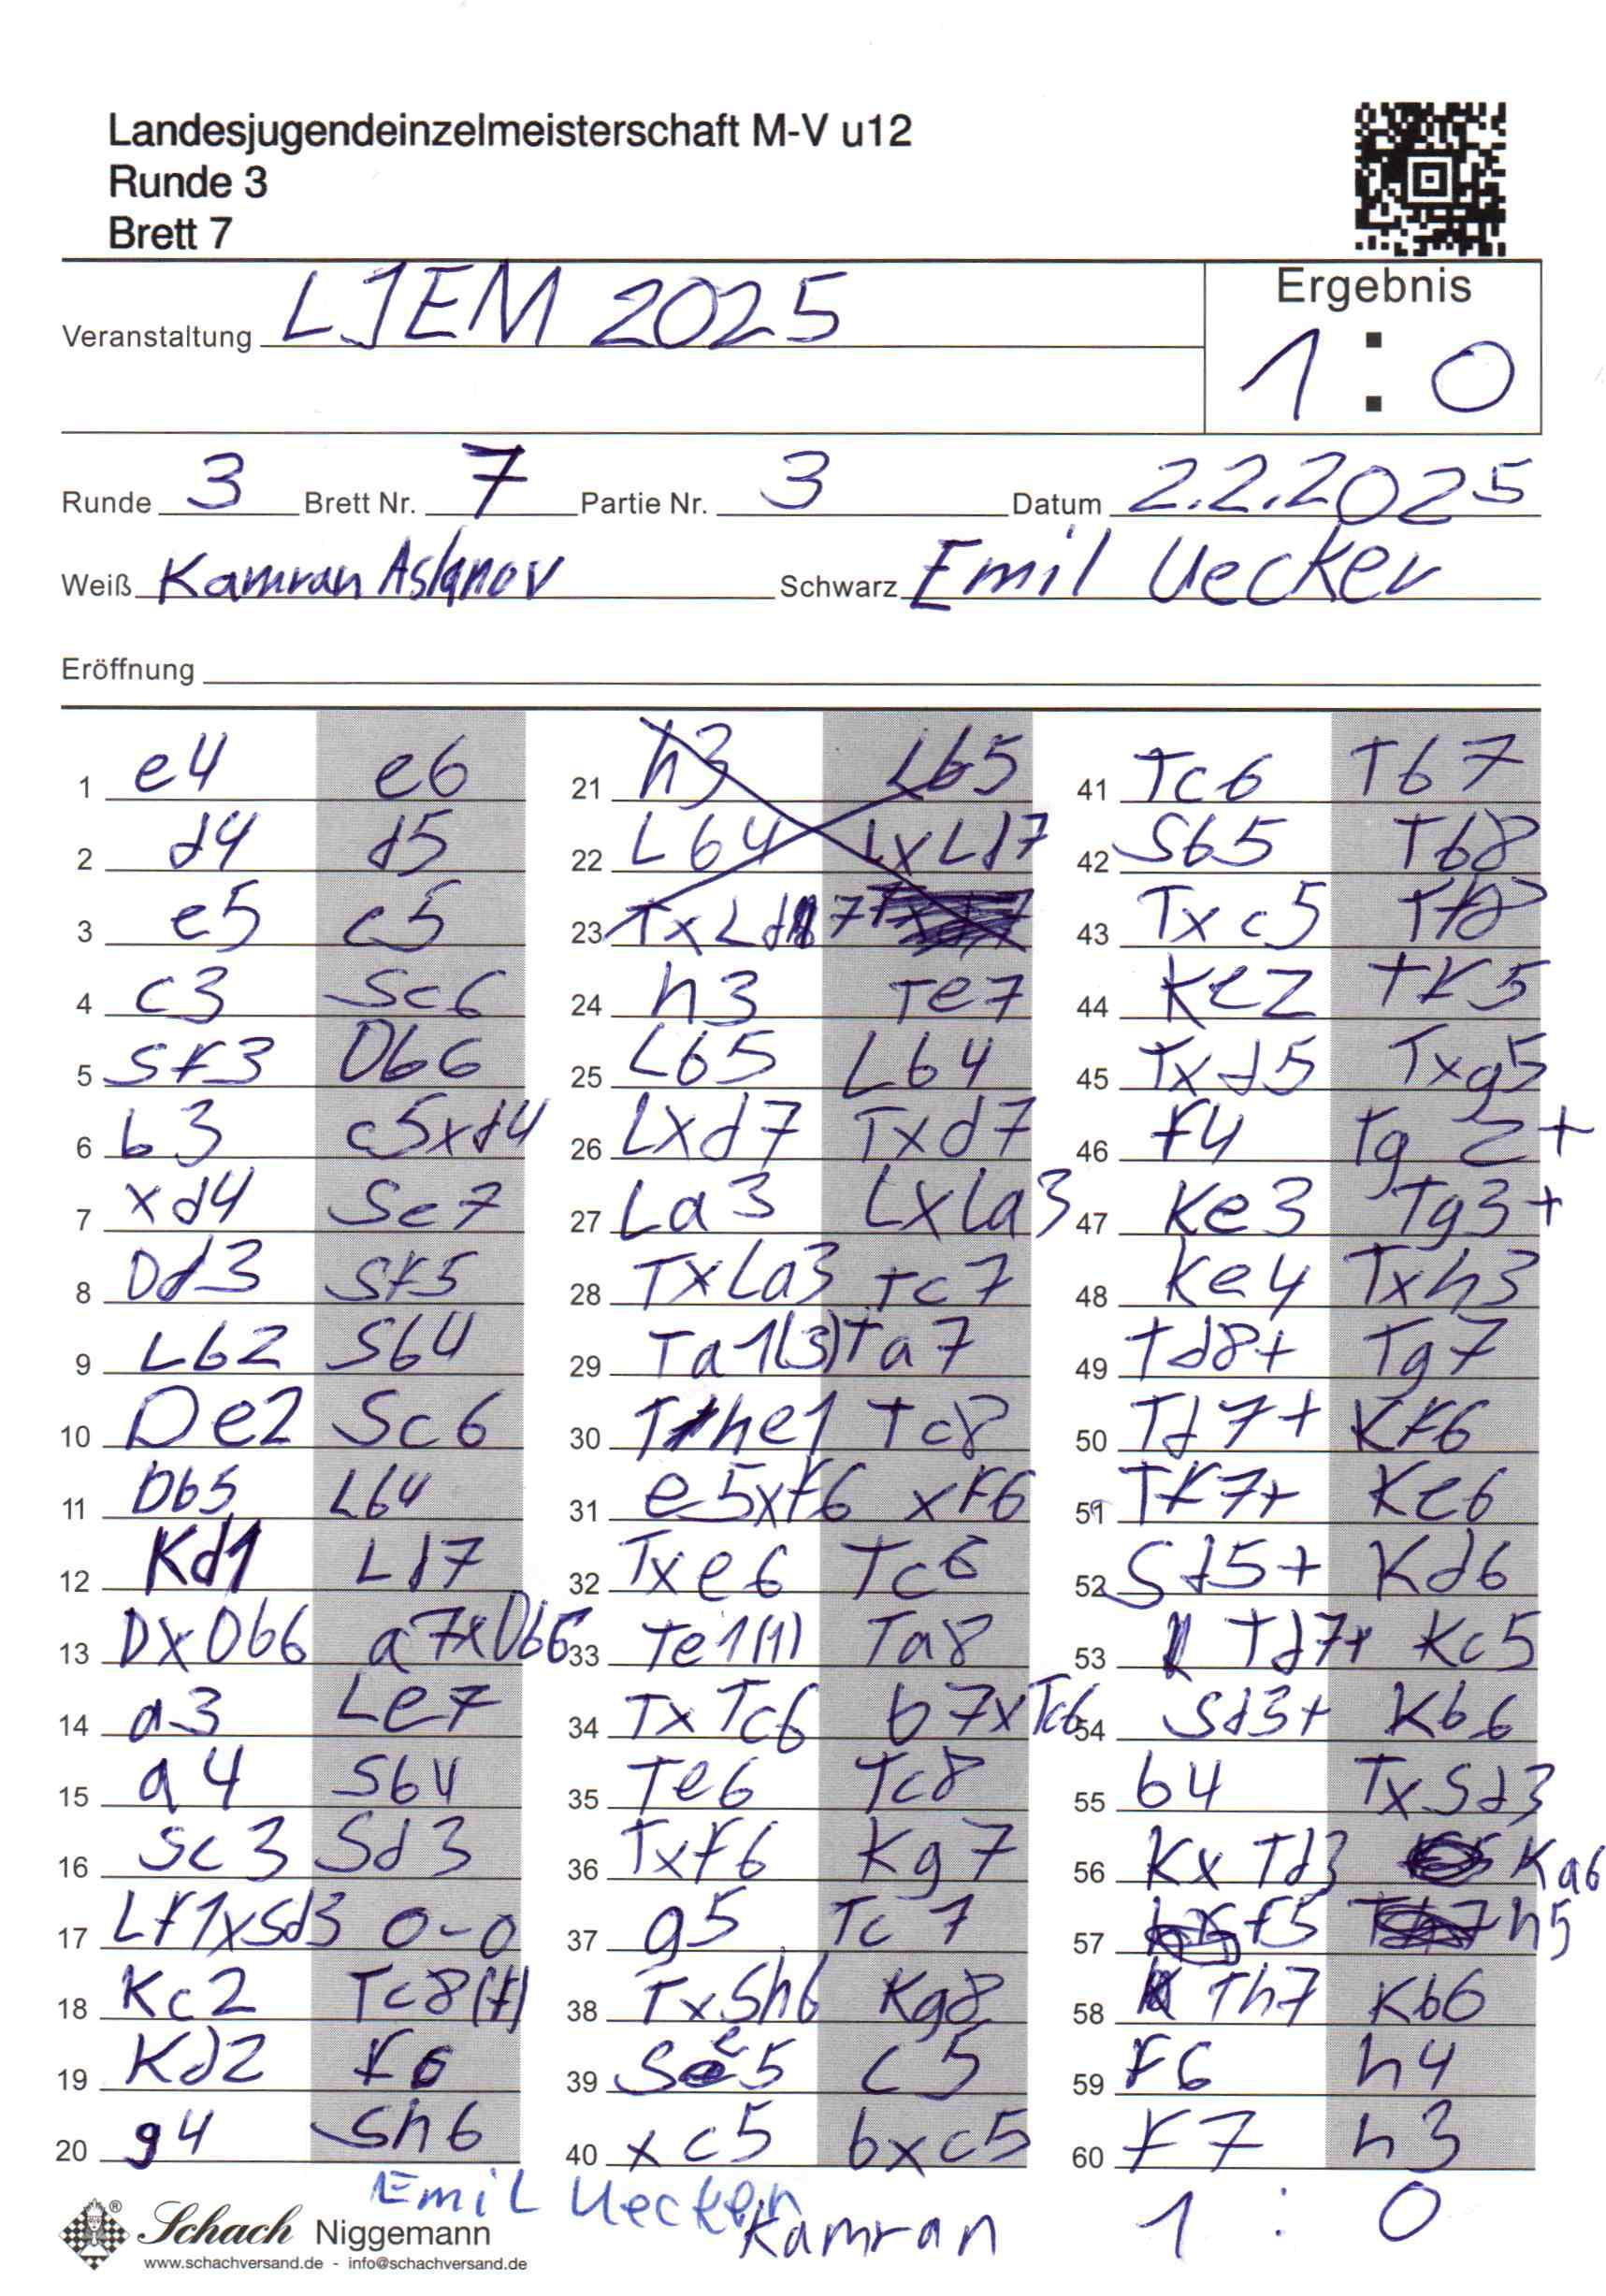 Landesjugendeinzelmeisterschaft M-V u12
Runde 3
Brett 7
Veranstaltung LJEM 2025
Ergebnis
1 : 0
Runde 3 Brett Nr. 7 Partie Nr. 3 Datum 2.2.2025
Weiß Kamran Aslanov Schwarz Emil Uecker
Eröffnung
1 e4 e6
2 d4 d5
3 e5 c5
4 c3 Sc6
5 Sf3 Db6
6 b3 c5xd4
7 xd4 Se7
8 Dd3 Sf5
9 Lb2 Sb4
10 De2 Sc6
11 Db5 Lb4
12 Kd1 Ld7
13 DxDb6 a7xDb6
14 a3 Le7
15 a4 Sb4
16 Sc3 Sd3
17 Lf1xSd3 0-0
18 Kc2 Tc8(f)
19 Kd2 f6
20 g4 Sh6
21 h3 Lb5
22 Lb4 LxLd7
23 TxLd7
24 h3 Te7
25 Lb5 Lb4
26 Lxd7 Txd7
27 La3 LxLa3
28 TxLa3 Tc7
29 Ta1(3) Ta7
30 The1 Tc8
31 e5xf6 xf6
32 Txe6 Tc6
33 Te1(1) Ta8
34 TxTc6 b7xTc6
35 Te6 Tc8
36 Txf6 Kg7
37 g5 Tc7
38 TxSh6 Kg8
39 Se5 c5
40 xc5 bxc5
41 Tc6 Tb7
42 Sb5 Tb8
43 Txc5 Tf8
44 Ke2 Tf5
45 Txd5 Txg5
46 f4 Tg2+
47 Ke3 Tg3+
48 Ke4 Txh3
49 Td8+ Tg7
50 Td7+ Kf6
51 Tf7+ Ke6
52 Sd5+ Kd6
53 Td7+ Kc5
54 Sd3+ Kb6
55 b4 TxSd3
56 KxTd3 Ka6
57 f5 h5
58 Th7 Kb6
59 f6 h4
60 f7 h3
Emil Uecker
Kamran
1 : 0
Schach Niggemann
www.schachversand.de - info@schachversand.de